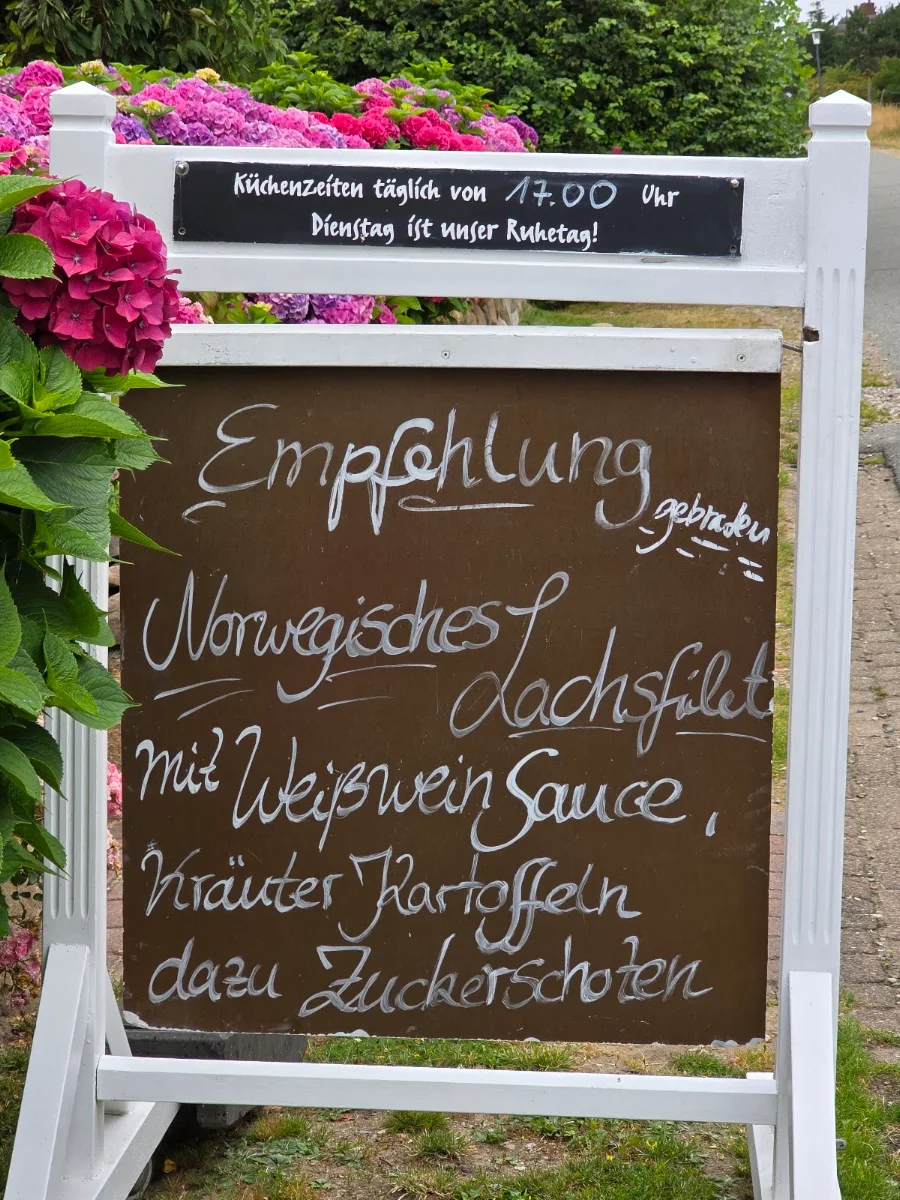 Küchenzeiten täglich von 17.00 Uhr
Dienstag ist unser Ruhetag!
Empfehlung
gebraten
Norwegisches
Lachsfilet
mit Weißwein Sauce,
Kräuter Kartoffeln
dazu Zuckerschoten